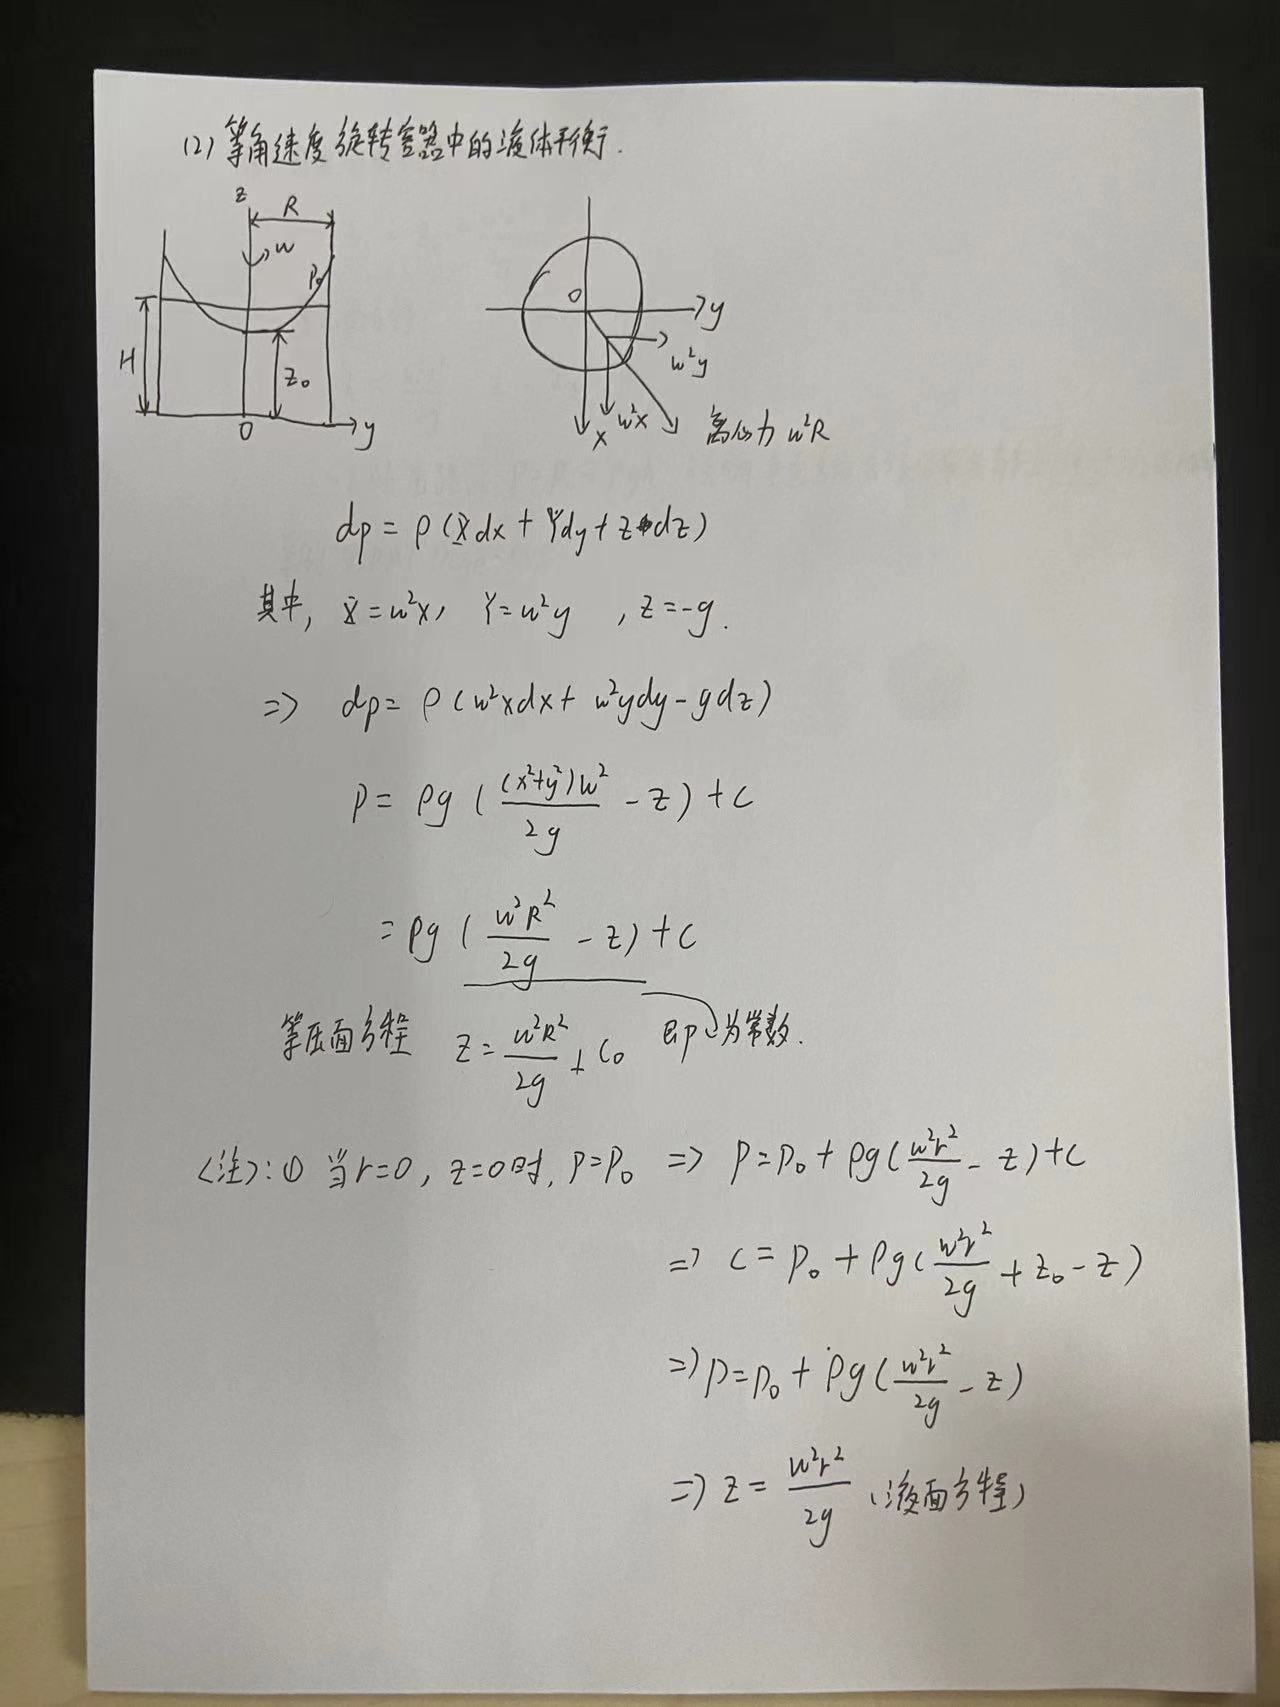 (2) 等角速度旋转容器中的液体平衡.
z
R
w
P₀
H
z₀
O
y
O
y
w²y
w²x
x
离心力 w²R
dp = ρ(Xdx + Ydy + zdz)
其中, X = w²x, Y = w²y , z = -g.
=> dp = ρ(w²xdx + w²ydy - gdz)
p = ρg((x²+y²)w²/2g - z) + c
= ρg(w²R²/2g - z) + c
等压面方程 z = w²R²/2g + C₀ 即p为常数.
<注>: ① 当r=0, z=0时, p=p₀ => p = p₀ + ρg(w²r²/2g - z) + c
=> c = p₀ + ρg(w²r²/2g + z₀ - z)
=> p = p₀ + ρg(w²r²/2g - z)
=> z = w²r²/2g (液面方程)